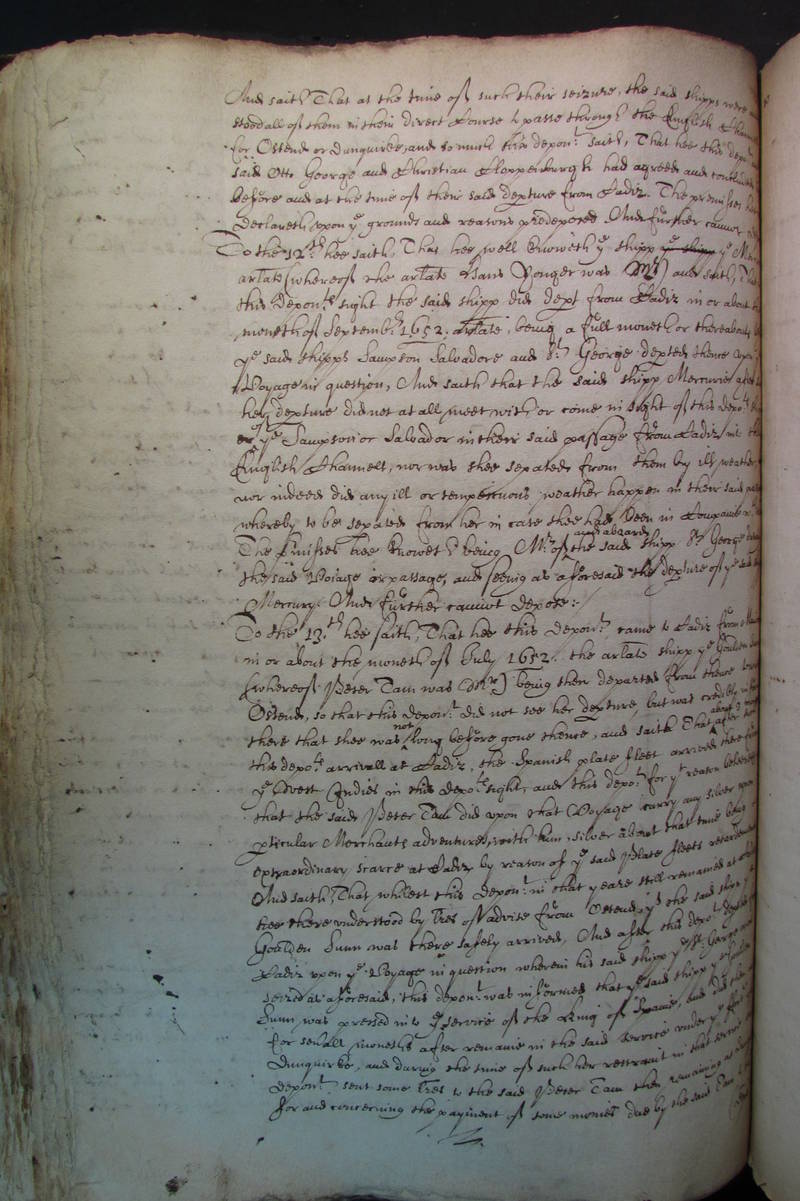 And saith That at the time of such their seizure, the said shipps were
stood all of them in their direct Course to passe through the English Channell
for Ostend or Dunquirke, and so much this depon:t saith, That hee this depon:t
said Otto George and Christian Cloppenburgh had agreed and
before and at the time of their said depture from Cadiz. The premisses hee
declareth upon ye grounds and reasons predeposed. And further cannot
To the 12:th hee saith, That hee well knoweth ye shipp ye shipp ye
arlate (whereof the arlate Hans Yonger was Mr) and saith, That
this depon:ts sight the said shipp did dept from Cadiz in or about the
moneth of Septemb:r 1652. arlate, being a full moneth or thereabouts
ye said shipps Sampson Salvadore and St: George depted thence upon
Voyage in question, And saith that the said shipp Mercurie after
her depture did not at all meet with or come in sight of this depo:t
or of ye Sampson or Salvador in their said passage from Cadiz in the
English Channell, nor was shee sepated from them by ill weather
nor indeed did any ill or tempestuous weather happen in their said
whereby to be sepated from her in case shee had been in Companie
The Premisses hee knoweth being Mr: of and aboard the said shipp St George
the said Voiage or passage, and seeing as aforesaid the depture of ye said
Mercury. And further cannot depose:-
To the 13:th hee saith, That hee this depon:t came to Cadiz from
in or about the moneth of July 1652. the arlate shipp ye Goulden
(whereof Peter Tam was Mr) being then departed from thence
Ostend, so that this depon:t did not see her depture, but was credibly
there that shee was not long before gone thence, and saith That about
this depo:ts arrivall at Cadiz, the Spanish plate fleet arrived there
ye West Indies in this depo:ts sight, and this depo:t for yt reason beleeveth
that the said Peter Tam did upon that Voyage carry any silver
pticular Merchants adventures with him, silver about that time being
extraordinary scarce at Cadiz by reason of ye said Plate fleets retardment
And saith, That whilest this depon:t in that yeare still remained at
hee there understood by lres of advise from Ostend, yt the said shipp
Goulden Sunn was there safely arrived, And after this depo:ts depture
Cadiz upon ye Voyage in question wherein his said shipp ye St George
seized as aforesaid, this depon:t was informed that ye said shipp ye
Sunn was pressed into ye service of the King of Spaine, and did
for sevall moneths after remaine in the said service under
Dunquirke, and during the time of such her restraint in that
depon:t sent some lres to the said Peter Tam then remaining at
for and concerning the payment of some monies due by the said Tam